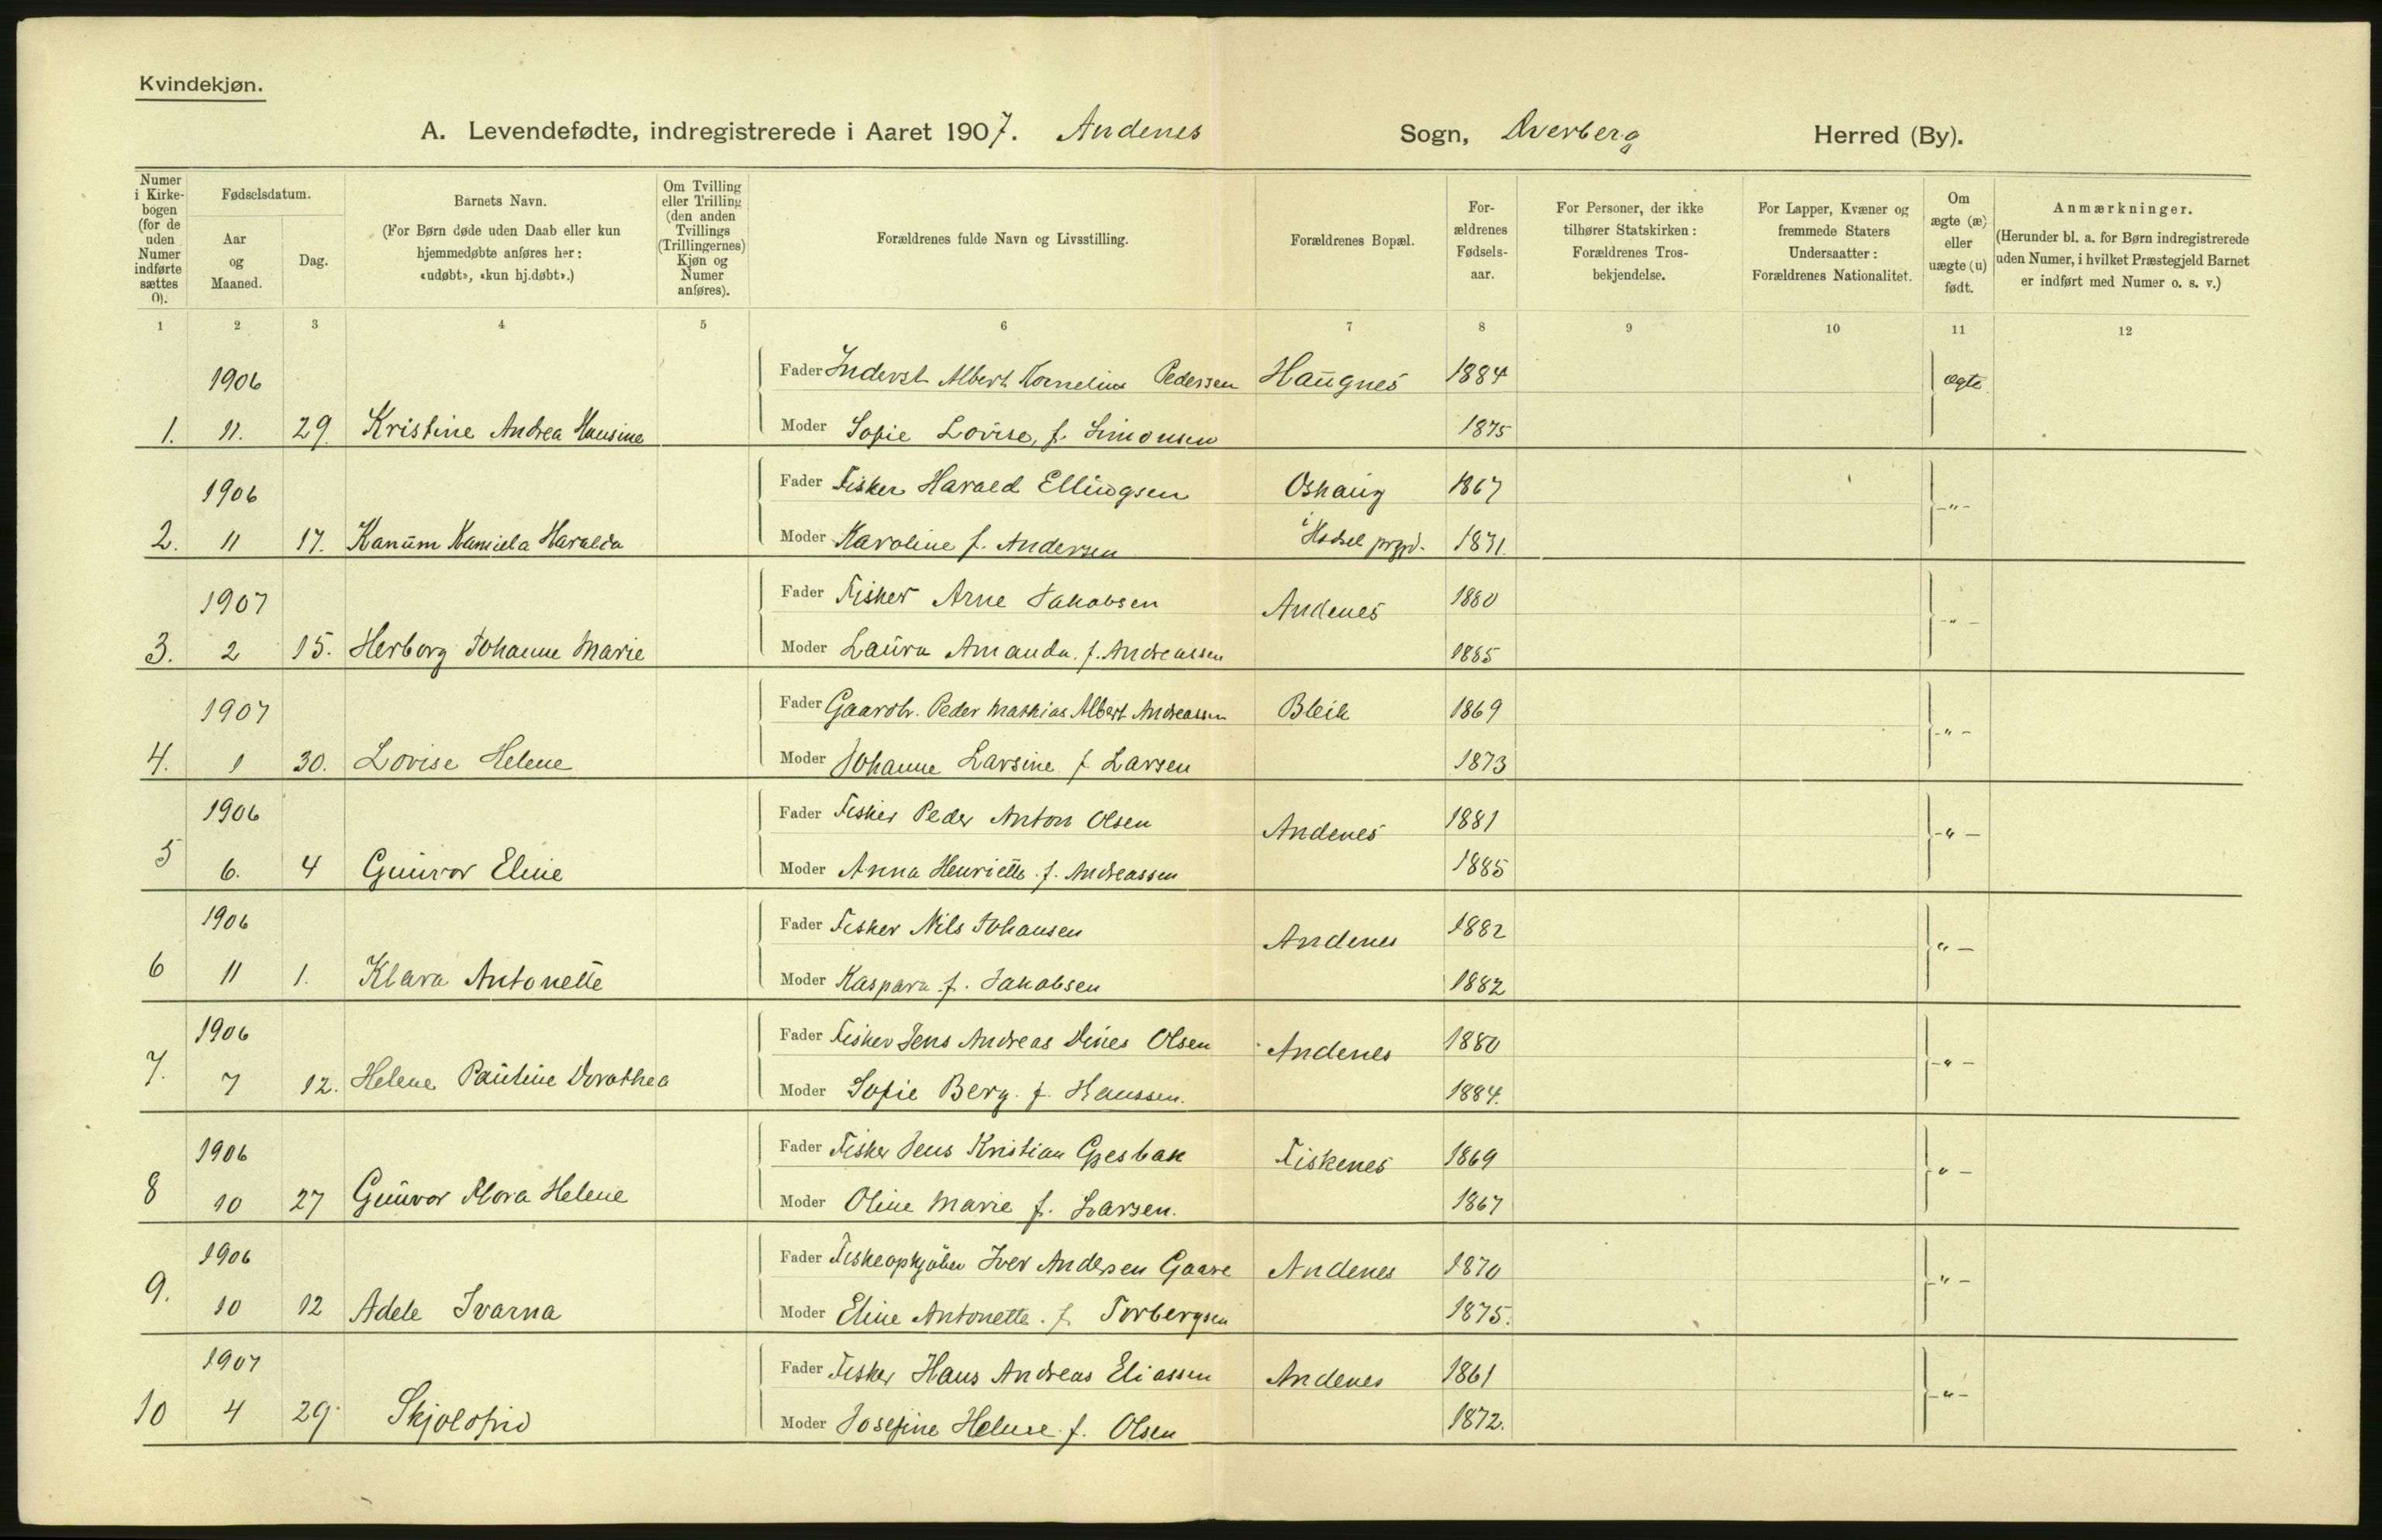 Kvindekjøn.
A. Levendefødte, indregistrerede i Aaret 1907. Andenes Sogn, Dverberg Herred (By).
Numer i Kirkebogen (for de uden Numer indførte sættes 0).
Fødselsdatum.
Aar og Maaned.
Dag.
Barnets Navn.
(For Børn døde uden Daab eller kun hjemmedøbte anføres her: «udøbt», «kun hj.døbt».)
Om Tvilling eller Trilling (den anden Tvillings (Trillingernes) Kjøn og Numer anføres).
Forældrenes fulde Navn og Livsstilling.
Forældrenes Bopæl.
Forældrenes Fødselsaar.
For Personer, der ikke tilhører Statskirken: Forældrenes Trosbekjendelse.
For Lapper, Kvæner og fremmede Staters Undersaatter: Forældrenes Nationalitet.
Om ægte (æ) eller uægte (u) født.
Anmærkninger.
(Herunder bl. a. for Børn indregistrerede uden Numer, i hvilket Præstegjeld Barnet er indført med Numer o. s. v.)
1 2 3 4 5 6 7 8 9 10 11 12
1906 Fader Inderst Albert Kornelius Pedersen Haugnes 1884 ægte
1. 11. 29. Kristine Andrea Hansine Moder Sofie Lovise, f. Simonsen 1875
1906 Fader Fisker Harald Ellingsen Oshaug 1867 -"-
2. 11 17. Kamilla Haralda Moder Karoline f. Andersen i Hadsel prgjd. 1871
1907 Fader Fisker Arne Jakobsen Andenes 1880 -"-
3. 2 15. Herborg Johanne Marie Moder Laura Amanda. f. Andreassen 1885
1907 Fader Gaardb. Peder Mathias Albert Andreassen Bleik 1869 -"-
4. 1 30. Lovise Helene Moder Johanne Larsine f. Larsen 1873
1906 Fader Fisker Peder Anton Olsen Andenes 1881 -"-
5 6. 4 Gunvor Eline Moder Anna Henriette. f. Andreassen 1885
1906 Fader Fisker Nils Johansen Andenes 1882 "-
6 11 1. Klara Antonette Moder Kaspara f. Jakobsen 1882
1906 Fader Fisker Jens Andreas Dines Olsen Andenes 1880 -"-
7. 7 12. Helene Pauline Dorothea Moder Sofie Berg. f. Hanssen. 1884.
1906 Fader Fisker Jens Kristian Gjesbak Fiskenes 1869 "-
8 10 27 Gunvor Flora Helene Moder Oline Marie f. Larsen. 1867
1906 Fader Fiskeopkjøber Iver Andersen Gaare Andenes 1870 -"-
9. 10 12 Adele Ivarna Moder Eline Antonette. f. Torbergsen 1875.
1907 Fader Fisker Hans Andreas Eliassen Andenes 1861 -"-
10 4 29. Skjoldfrid Moder Josefine Heluse f. Olsen 1872.